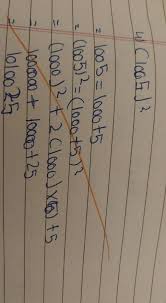 4) (1005)²
= 1005 = 1000+5
= (1005)² = (1000+5)²
= (1000)² + 2 (1000) × (5) + 5
= 1000000 + 10000 + 25
= 1010025